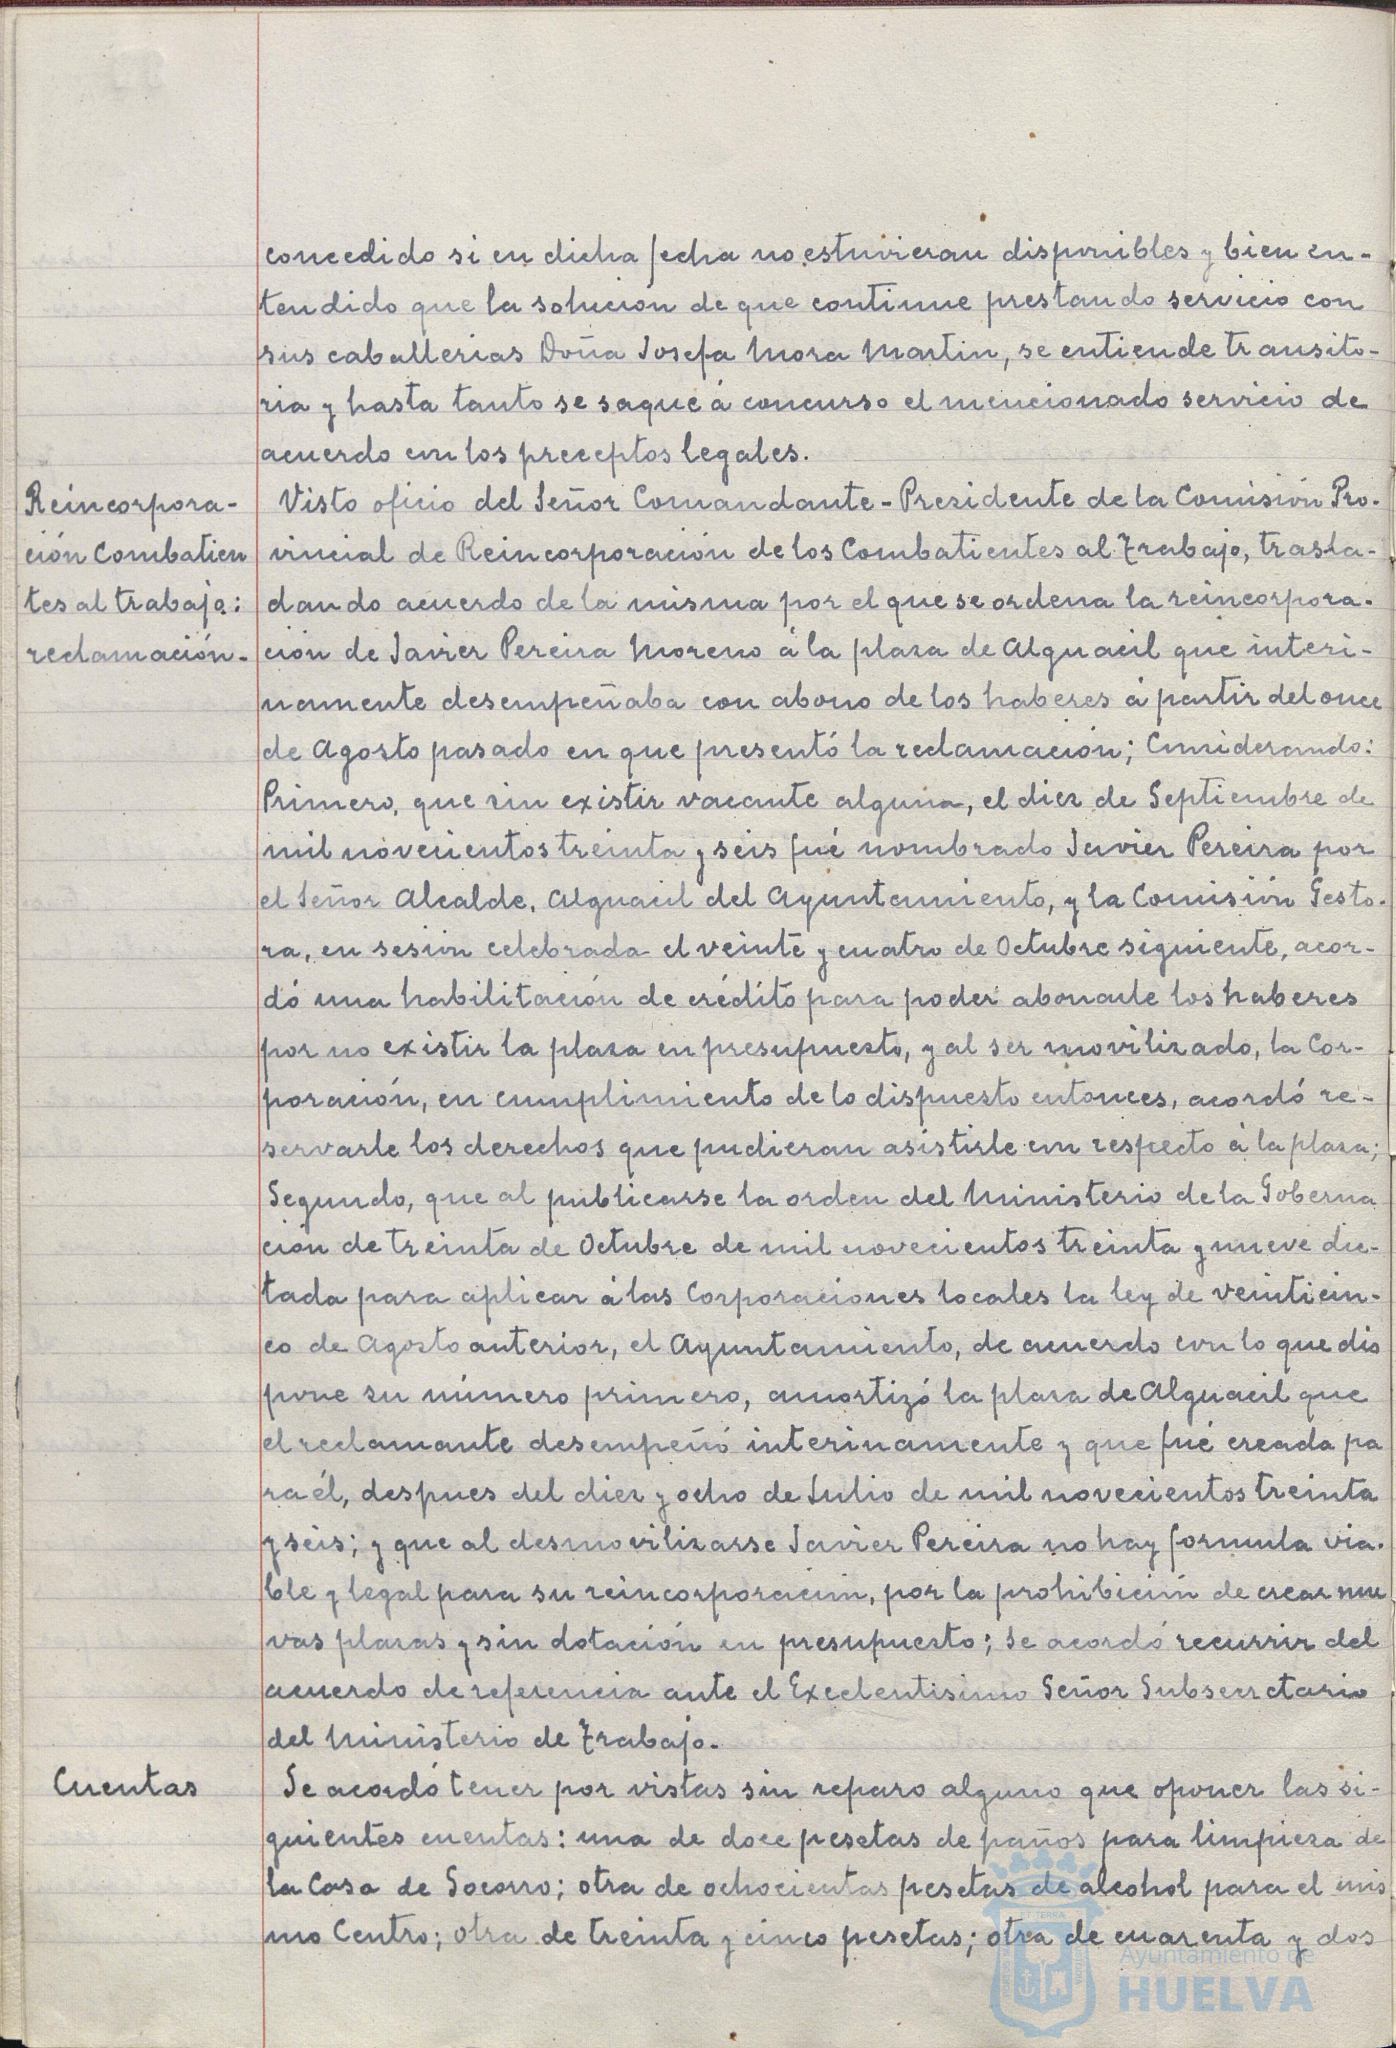 concedido si en dicha fecha no estuvieran disponibles y bien en-
tendido que la solución de que continue prestando servicio con
sus caballerias Doña Josefa Mora Martin, se entiende transito-
ria y hasta tanto se saque á concurso el mencionado servicio de
acuerdo con los preceptos legales.
Reincorpora-
ción Combatien
tes al trabajo:
reclamación.
Visto oficio del Señor Comandante-Presidente de la Comisión Pro-
vincial de Reincorporación de los Combatientes al Trabajo, trasla-
dando acuerdo de la misma por el que se ordena la reincorpora-
ción de Javier Pereira Moreno á la plaza de Alguacil que interi-
namente desempeñaba con abono de los haberes á partir del once
de Agosto pasado en que presentó la reclamación; Considerando:
Primero, que sin existir vacante alguna, el diez de Septiembre de
mil novecientos treinta y seis fué nombrado Javier Pereira por
el Señor Alcalde, Alguacil del Ayuntamiento, y la Comisión Gesto-
ra, en sesión celebrada el veinte y cuatro de Octubre siguiente, acor-
dó una habilitación de crédito para poder abonarle los haberes
por no existir la plaza en presupuesto, y al ser movilizado, la Cor-
poración, en cumplimiento de lo dispuesto entonces, acordó re-
servarle los derechos que pudieran asistirle con respecto á la plaza;
Segundo, que al publicarse la orden del Ministerio de la Goberna
ción de treinta de Octubre de mil novecientos treinta y nueve dic-
tada para aplicar á las Corporaciones locales la ley de veinticin-
co de Agosto anterior, el Ayuntamiento, de acuerdo con lo que dis
pone su número primero, amortizó la plaza de Alguacil que
el reclamante desempeñó interinamente y que fué creada pa
ra él, despues del diez y ocho de Julio de mil novecientos treinta
y seis; y que al desmovilizarse Javier Pereira no hay formula via-
ble y legal para su reincorporación, por la prohibición de crear nue
vas plazas y sin dotación en presupuesto; se acordó recurrir del
acuerdo de referencia ante el Excelentisimo Señor Subsecretario
del Ministerio de Trabajo.
Cuentas
Se acordó tener por vistas sin reparo alguno que oponer las si-
guientes cuentas: una de doce pesetas de paños para limpieza de
la Casa de Socorro; otra de ochocientas pesetas de alcohol para el mis
mo Centro; otra de treinta y cinco pesetas; otra de cuarenta y dos
Ayuntamiento de
HUELVA